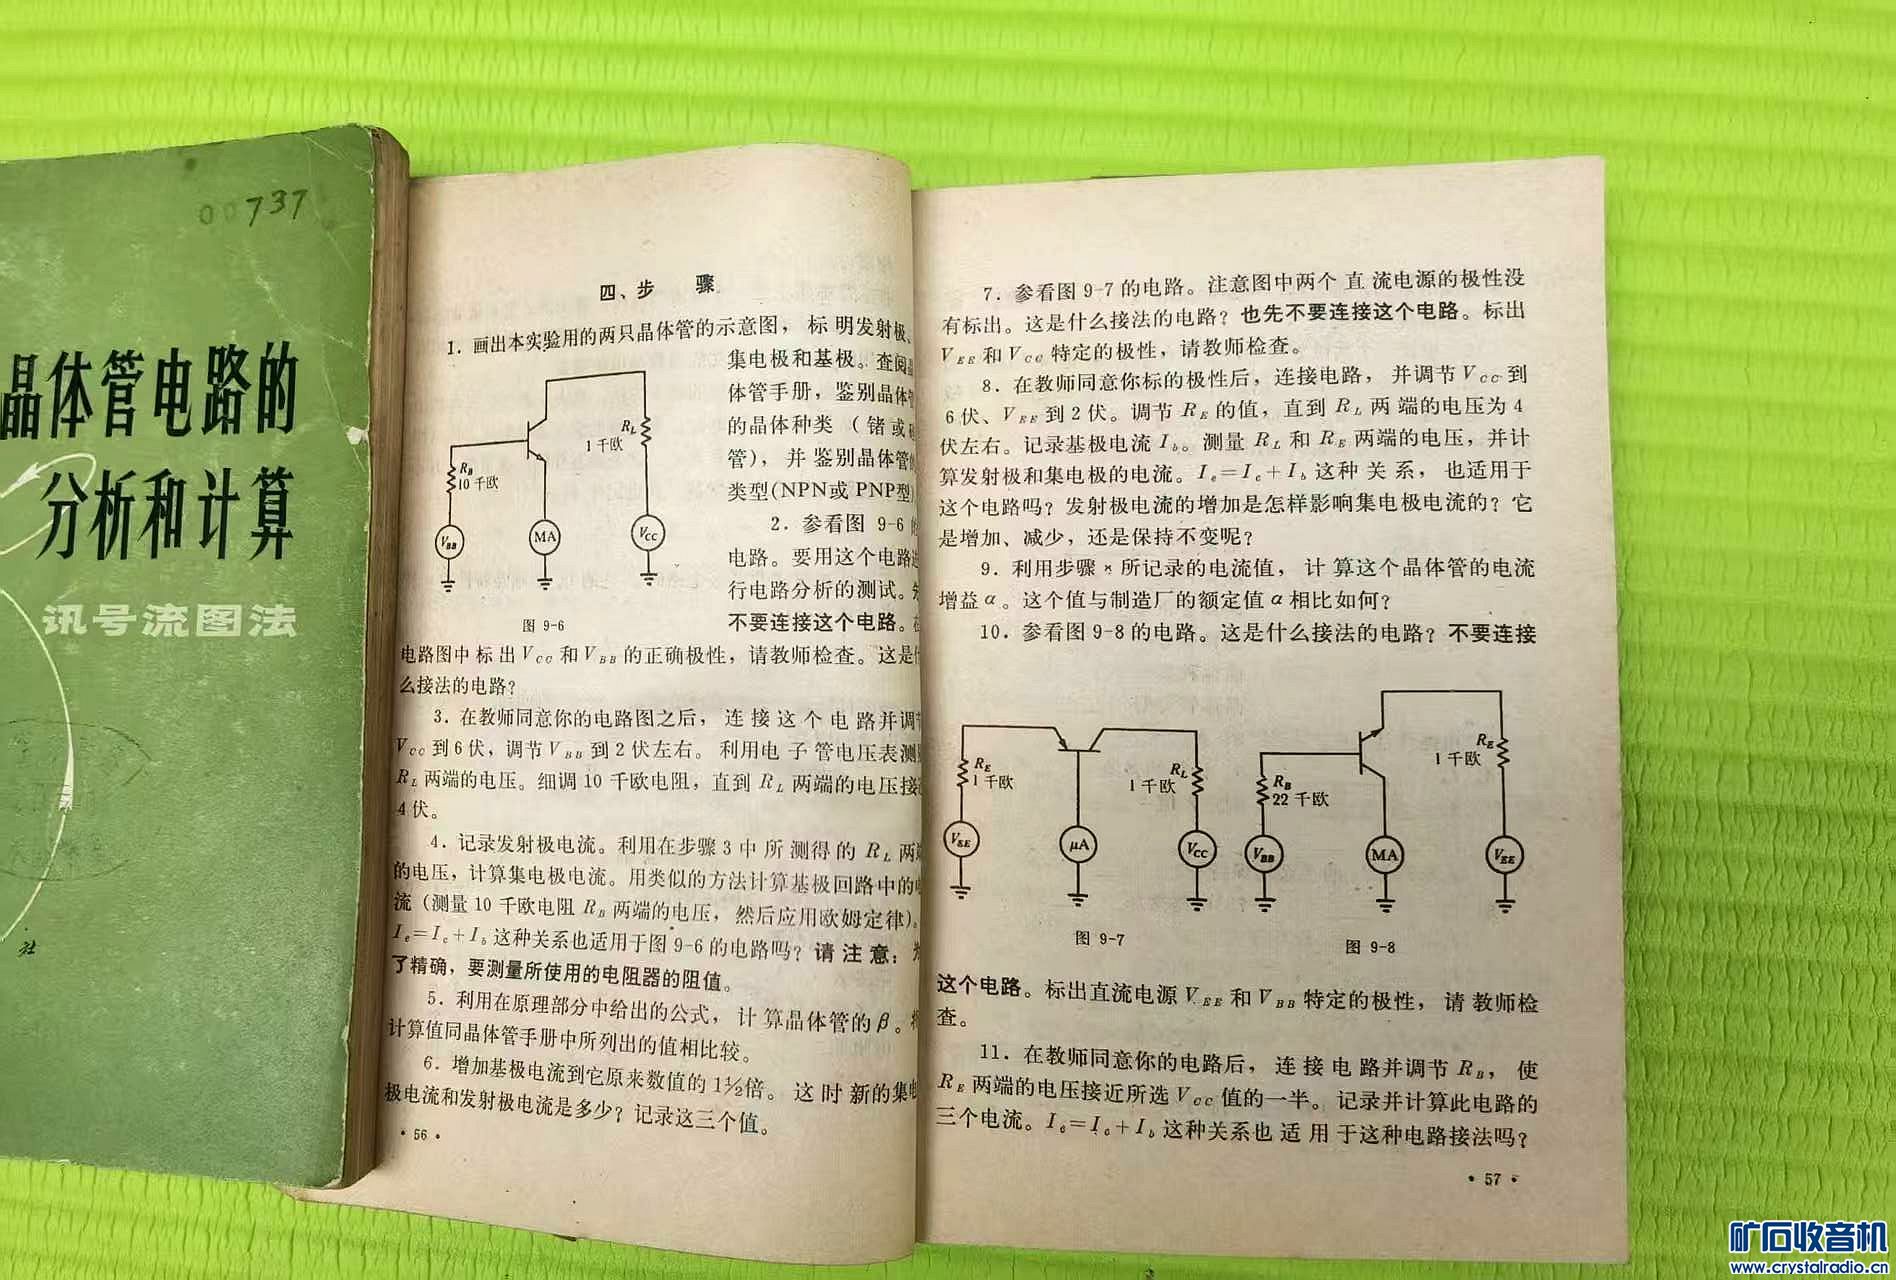 00737
晶体管电路的
分析和计算
讯号流图法
社
四、步 骤
1．画出本实验用的两只晶体管的示意图，标明发射极、
集电极和基极。查阅晶
体管手册，鉴别晶体管
的晶体种类（锗或硅
管），并鉴别晶体管的
类型(NPN或PNP型)
2．参看图 9-6 的
电路。要用这个电路进
行电路分析的测试。先
不要连接这个电路。在
R_L
1千欧
R_B
10千欧
V_BB
MA
V_CC
图 9-6
电路图中标出V_CC和V_BB的正确极性，请教师检查。这是什
么接法的电路？
3．在教师同意你的电路图之后，连接这个电路并调节
V_CC到6伏，调节V_BB到2伏左右。利用电子管电压表测量
R_L两端的电压。细调10千欧电阻，直到R_L两端的电压接近
4伏。
4．记录发射极电流。利用在步骤3中所测得的R_L两端
的电压，计算集电极电流。用类似的方法计算基极回路中的电
流（测量10千欧电阻R_B两端的电压，然后应用欧姆定律）。
I_e=I_c+I_b这种关系也适用于图9-6的电路吗？请注意：为
了精确，要测量所使用的电阻器的阻值。
5．利用在原理部分中给出的公式，计算晶体管的β。将
计算值同晶体管手册中所列出的值相比较。
6．增加基极电流到它原来数值的1½倍。这时新的集电
极电流和发射极电流是多少？记录这三个值。
·56·
7．参看图9-7的电路。注意图中两个直流电源的极性没
有标出。这是什么接法的电路？也先不要连接这个电路。标出
V_EE和V_CC特定的极性，请教师检查。
8．在教师同意你标的极性后，连接电路，并调节V_CC到
6伏、V_EE到2伏。调节R_E的值，直到R_L两端的电压为4
伏左右。记录基极电流I_b。测量R_L和R_E两端的电压，并计
算发射极和集电极的电流。I_e=I_c+I_b这种关系，也适用于
这个电路吗？发射极电流的增加是怎样影响集电极电流的？它
是增加、减少，还是保持不变呢？
9．利用步骤 所记录的电流值，计算这个晶体管的电流
增益α。这个值与制造厂的额定值α相比如何？
10．参看图9-8的电路。这是什么接法的电路？不要连接
R_E
1千欧
R_L
1千欧
V_EE
μA
V_CC
图 9-7
R_B
22千欧
R_E
1千欧
V_BB
MA
V_EE
图 9-8
这个电路。标出直流电源V_EE和V_BB特定的极性，请教师检
查。
11．在教师同意你的电路后，连接电路并调节R_B，使
R_E两端的电压接近所选V_CC值的一半。记录并计算此电路的
三个电流。I_e=I_c+I_b这种关系也适用于这种电路接法吗？
·57·
矿石收音机
www.crystalradio.cn